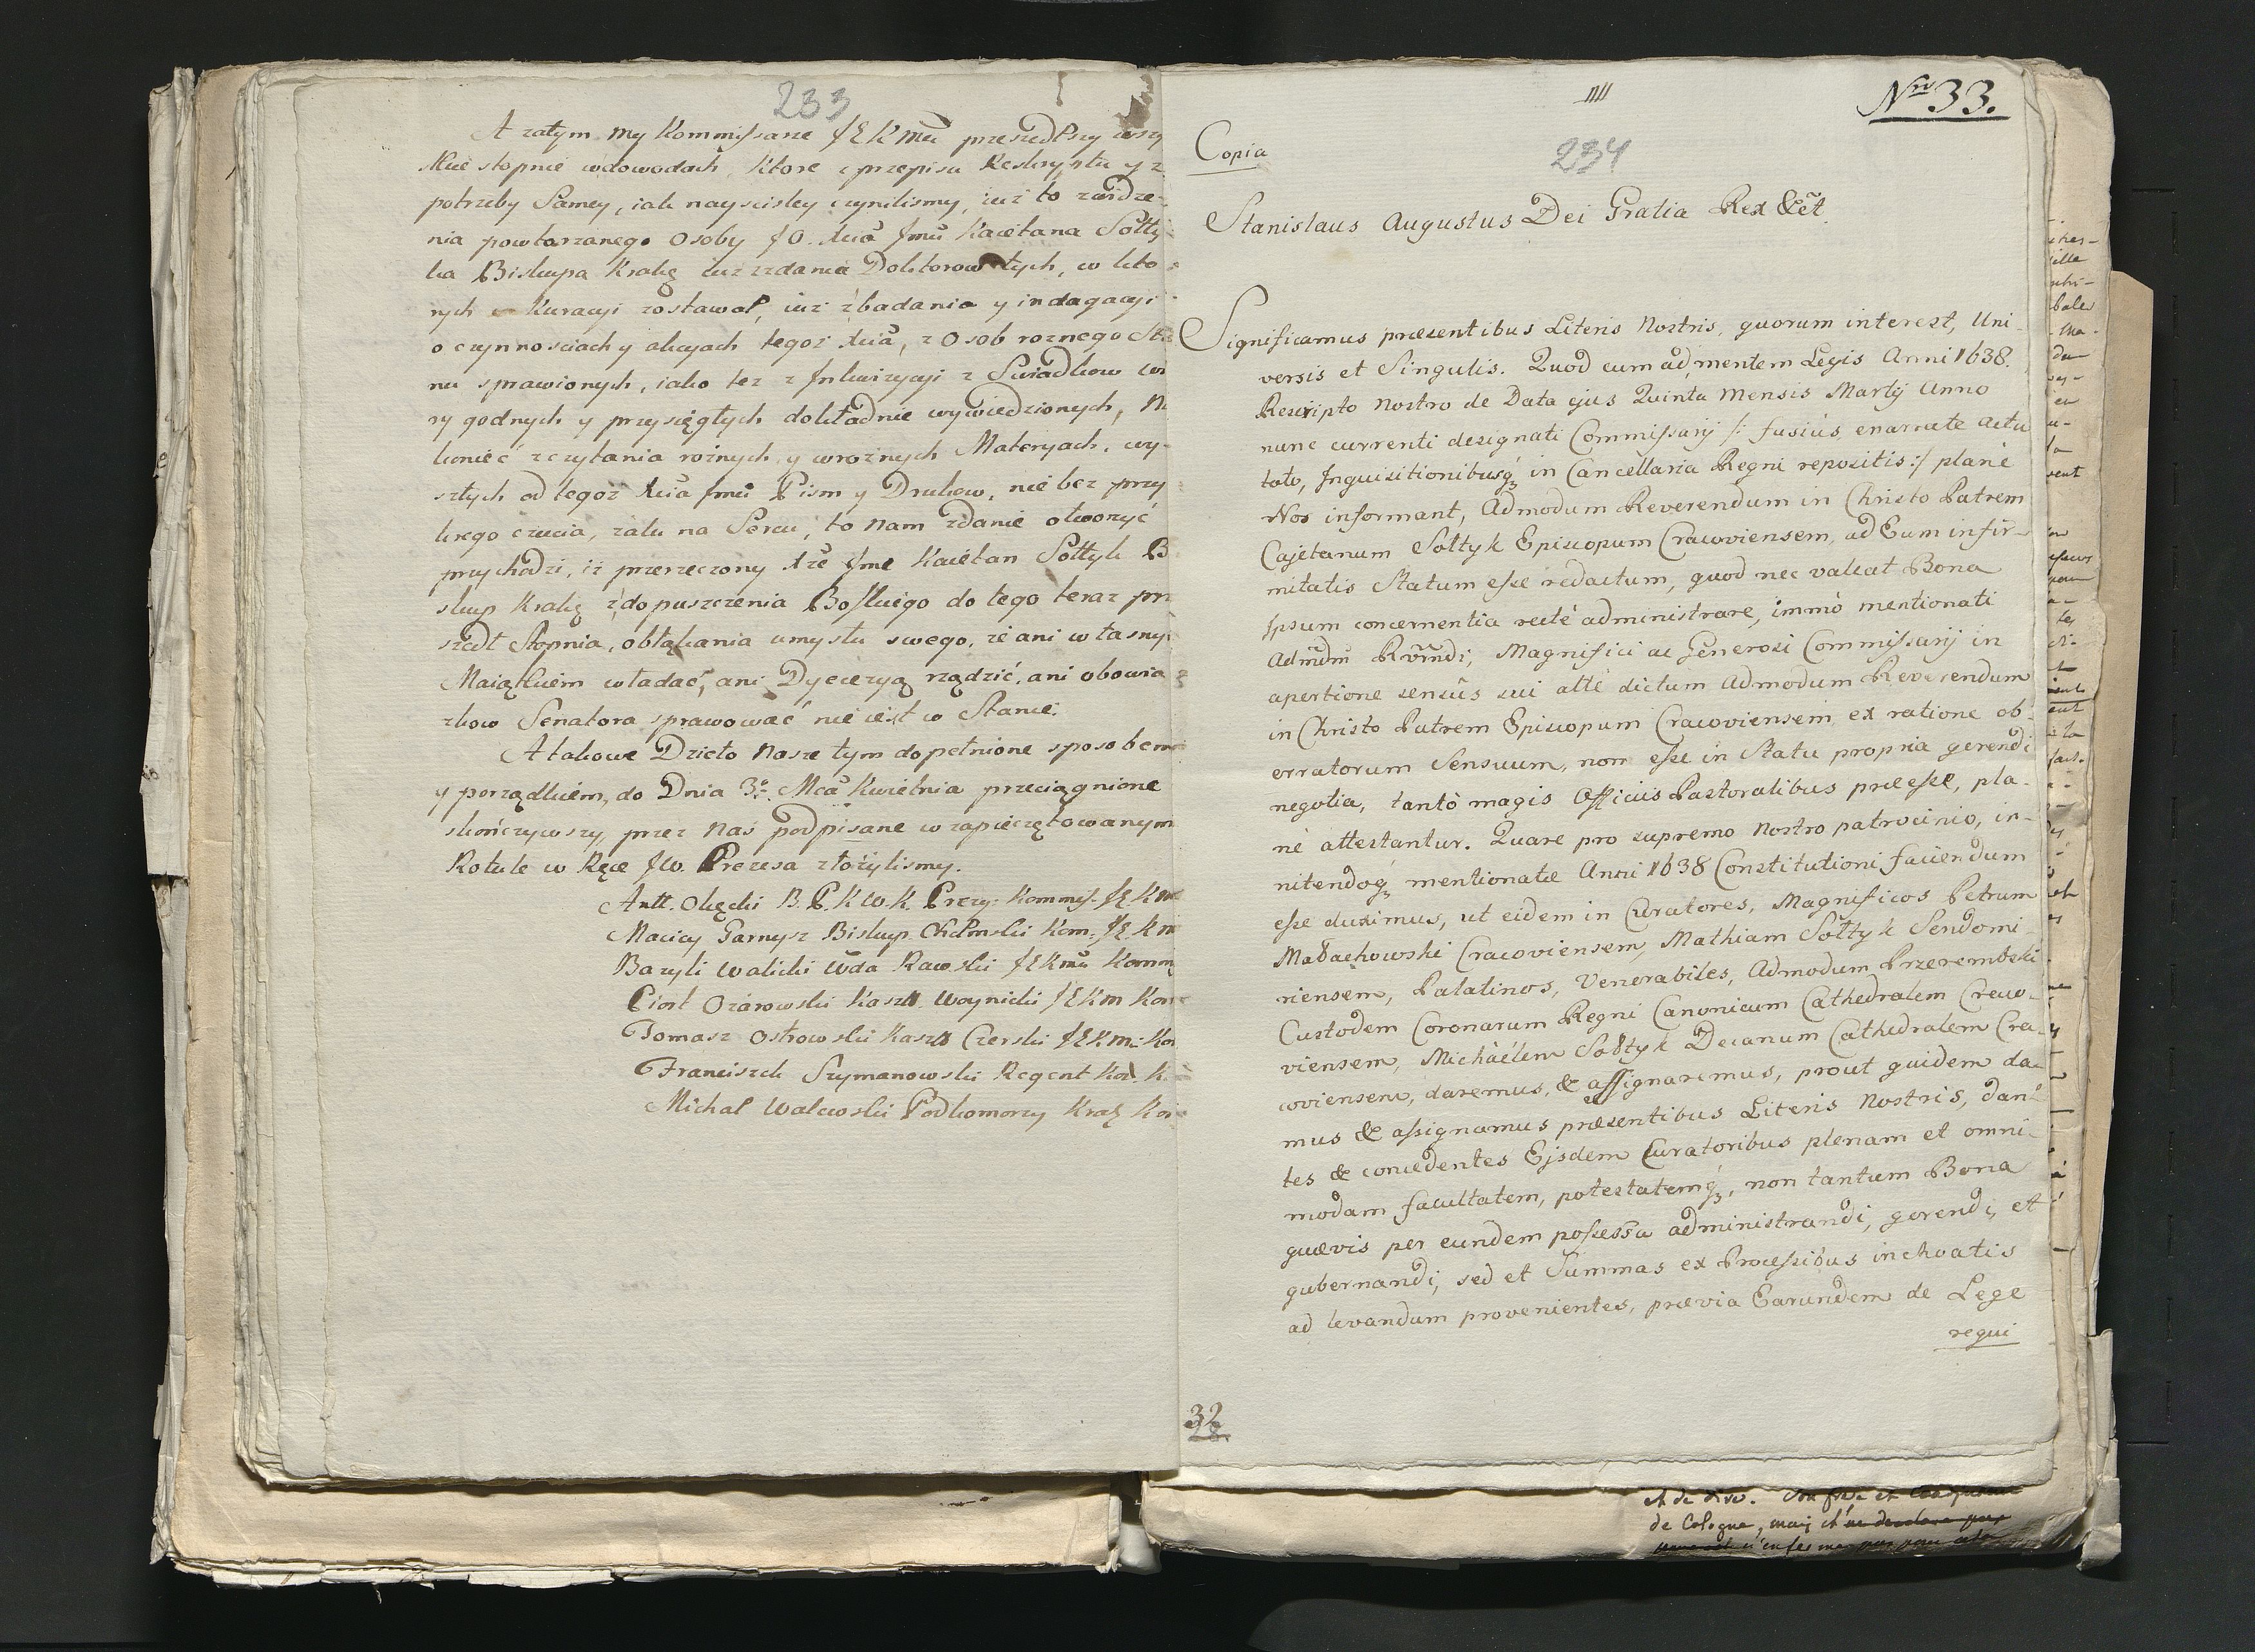 233
A zatym my Kommissarze JEKMci przeszedłszy wszy
stkie stopnie w dowodach, ktore z przepisu Reskryptu y z
potrzeby Samey, iak nayscisley czynilismy, iuż to z widze-
nia powtarzanego Osoby JO. Xcia Jmci Kaietana Sołty-
ka Biskupa Krakg iuż z zdania Doktorow tych, w kto-
rych Kuracyi zostawał, iuż z badania y indagacyi
o czynnosciach y akcyach tegoż Xcia, z Osob roznego Sta
nu sprawionych, iako też z Inkwizycyi z Swiadkow wia
ry godnych y przysięgłych dokładnie wywiedzionych, Na
koniec z czytania rożnych y w rożnych Materyach, wy-
szłych od tegoż Xcia Jmci Pism y Drukow, nie bez przy
krego czucia, żalu na Sercu, to nam zdanie otworzyć
przychodzi, iż przerzeczony Xże Jmc Kaietan Sołtyk Bi
skup Krakg z dopuszczenia Boskiego do tego teraz prz
szedł Stopnia, obłąkania umysłu swego, że ani własnym
Maiątkiem władać, ani Dyecezyą rządzić, ani obowią
zkow Senatora sprawować nie iest w Stanie.
A takowe Dzieło Nasze tym dopełnione sposobem
y porządkiem, do Dnia 3o. Mca Kwietnia przeciągnione
skończywszy, przez Nas podpisane w zapieczętowanym
Rotule w Ręce JW. Prezesa złożylismy.
Antt. Okęcki B. P. K. W. K. Prezy: Kommis. JE. Km
Maciey Garnysz Biskup Chełmski Kom. JE. Km
Bazyli Walicki Wda Rawski JEKmci Komm
Piotr Ożarowski Kaszt. Woynicki JEKm Kom
Tomasz Ostrowski Kaszt. Czerski JEKm: Kom
Franciszek Szymanowski Regent Kor. K.
Michał Walewski Podkomorzy Krak Kom
Nro 33.
234
Copia
Stanislaus Augustus Dei Gratia Rex &ct.
Significamus præsentibus Literis Nostris, quorum interest, Uni-
versis et Singulis. Quod cum ad mentem Legis Anni 1638.
Rescripto Nostro de Data ejus Quinta Mensis Martij Anno
nunc currenti designati Commissarij /: fusius enarrate actu
toto, Inquisitionibusq3 in Cancellaria Regni repositis :/ planè
Nos informant, Admodum Reverendum in Christo Patrem
Cajetanum Sołtyk Episcopum Cracoviensem, ad Eum infir-
mitatis Statum esse redactum, quod nec valeat Bona
Ipsum concernentia rectè administrare, immò mentionati
Admdm Rvrndi, Magnifici ac Generosi Commissarij in
apertione sensûs sui altè dictum Admodum Reverendum
in Christo Patrem Episcopum Cracoviensem ex ratione ob-
erratorum Sensuum, non esse in Statu propria gerendi
negotia, tantò magis Officiis Pastoralibus præesse, pla-
nè attestantur. Quare pro supremo Nostro patrocinio, in-
nitendoq3 mentionatæ Anni 1638 Constitutioni faciendum
esse duximus, ut eidem in Curatores, Magnificos Petrum
Małachowski Cracoviensem, Mathiam Sołtyk Sendomi-
riensem, Palatinos, Venerabiles, Admodum Przerembski
Custodem Coronarum Regni Canonicum Cathedralem Craco-
viensem, Michäélem Sołtyk Decanum Cathedralem Cra-
coviensem, daremus, & assignaremus, prout quidem da-
mus & assignamus præsentibus Literis Nostris, dan-
tes & concedentes Ejsdem Curatoribus plenam et omni-
modam facultatem, potestatemq3, non tantum Bona
quævis per eundem possessa administrandi, gerendi, et
gubernandi, sed et Summas ex Processibus inchoatis
ad levandum provenientes, prævia Earundem de Lege
requi
32
de Cologne, mais